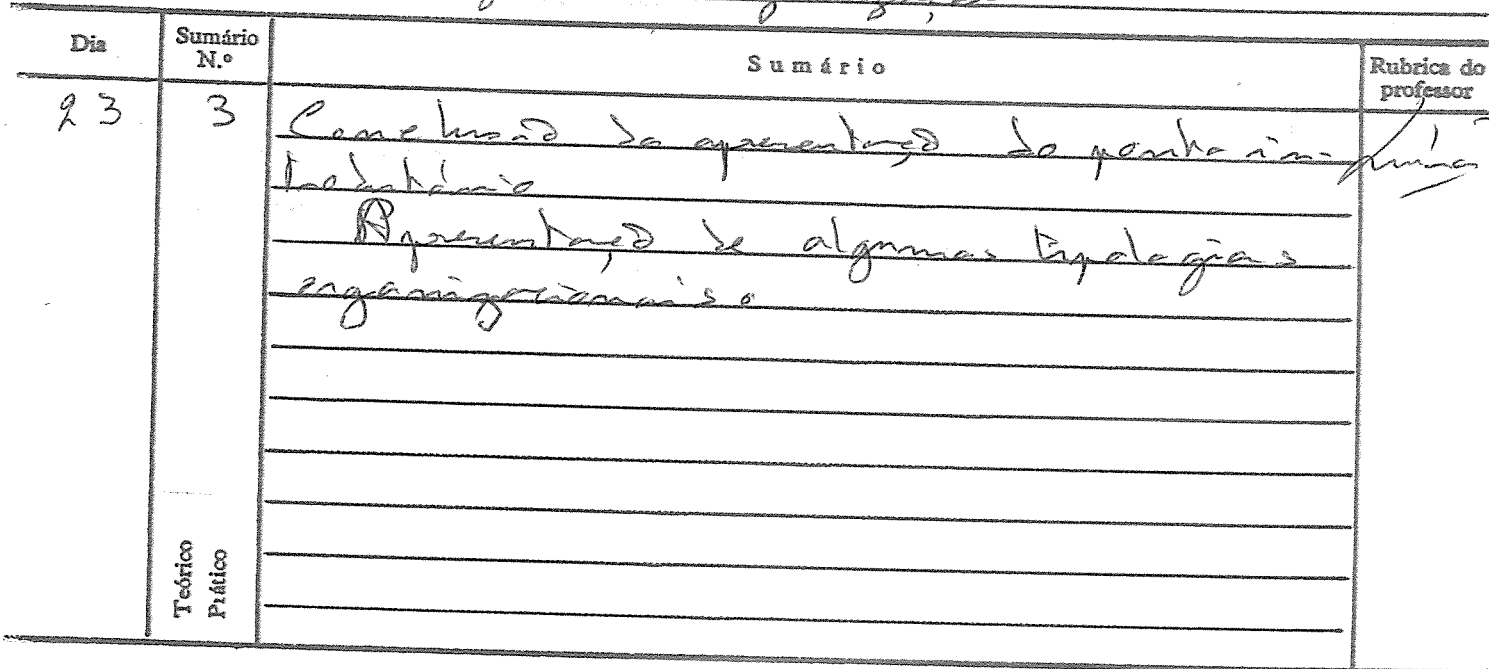 Dia
Sumário N.º
Sumário
Rubrica do professor
23
3
Conclusão da apresentação do ponto in-
trodutório
Apresentação de algumas tipologias
organizacionais.
Teórico
Prático